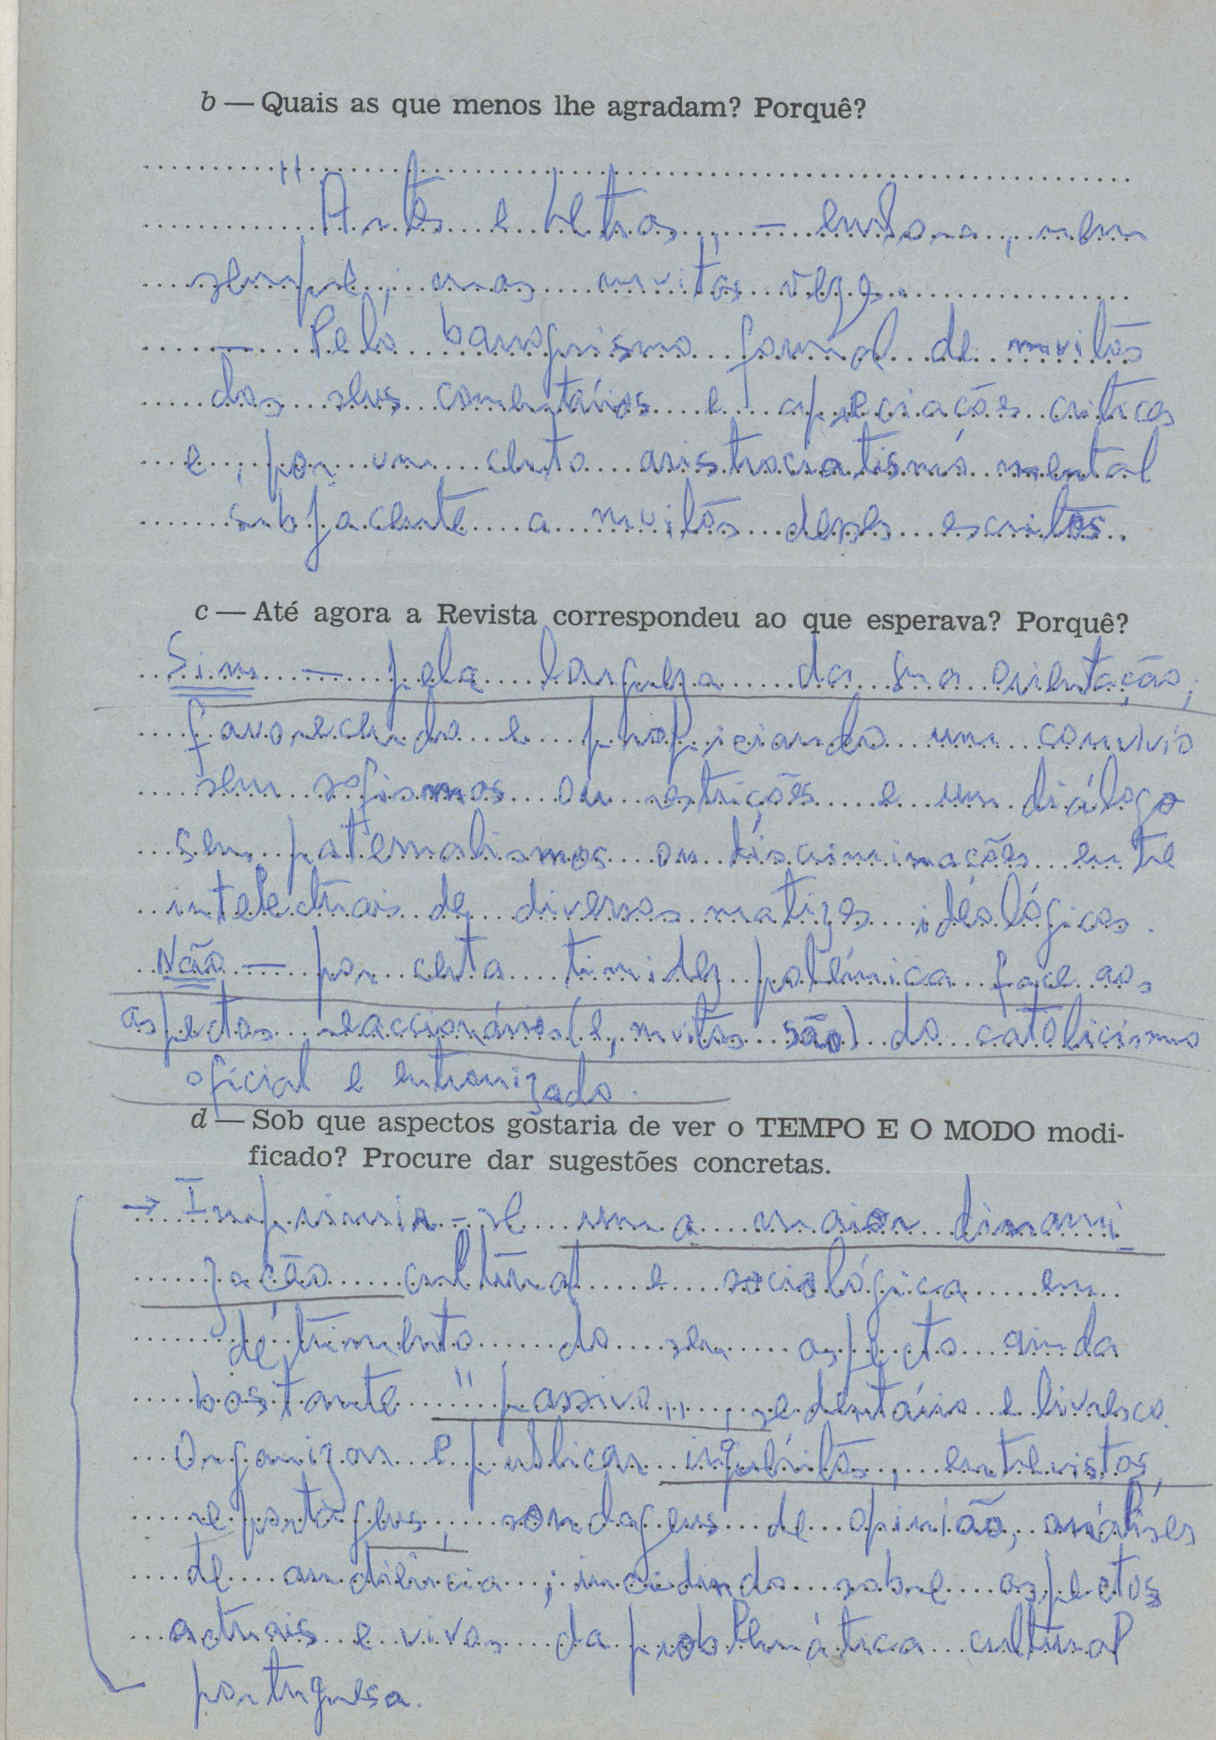 b — Quais as que menos lhe agradam? Porquê?
"Artes e Letras„ — embora, nem
sempre, mas muitas vezes.
— Pelo barroquismo formal de muitos
dos seus comentários e apreciações críticas
e, por um certo aristocratismo mental
subjacente a muitos desses escritos.
c — Até agora a Revista correspondeu ao que esperava? Porquê?
Sim — pela largueza da sua orientação,
favorecendo e propiciando um convívio
sem sofismas ou restrições e um diálogo
sem paternalismos ou discriminações entre
intelectuais de diversos matizes ideológicos.
Não — por certa timidez polémica face aos
aspectos reaccionários (e, muitos são) do catolicismo
oficial e entronizado.
d — Sob que aspectos gostaria de ver o TEMPO E O MODO modi-
ficado? Procure dar sugestões concretas.
→ Imprimir-se uma maior dinami
zação cultural e sociológica em
detrimento do seu aspecto ainda
bastante "passivo„, sedentário e livresco.
Organizar e publicar inquéritos, entrevistas,
reportagens, sondagens de opinião, análises
de audiência, incidindo sobre aspectos
actuais e vivos da problemática cultural
portuguesa.